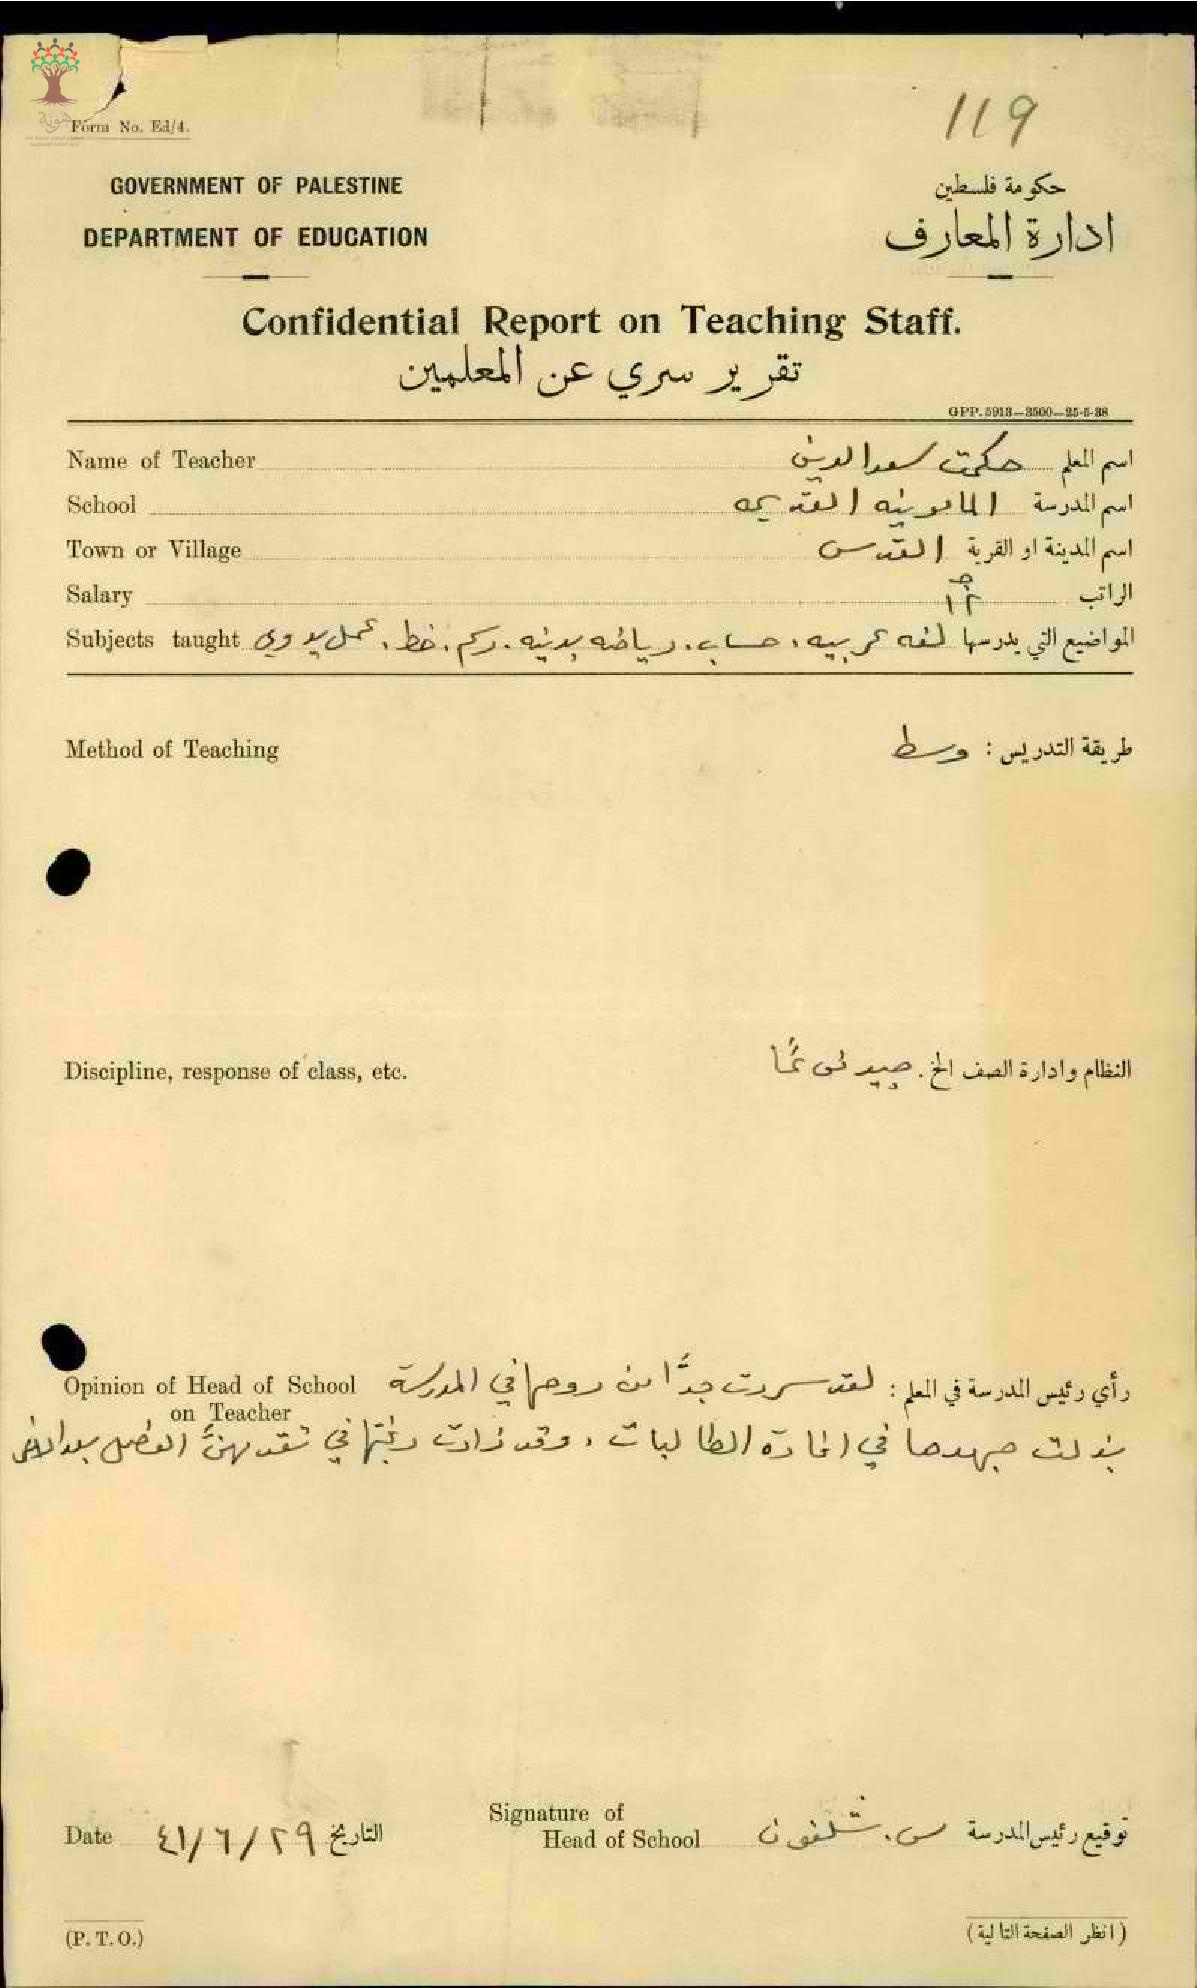 119
هوية
Form No. Ed/4.
GOVERNMENT OF PALESTINE
حكومة فلسطين
DEPARTMENT OF EDUCATION
ادارة المعارف
Confidential Report on Teaching Staff.
تقرير سري عن المعلمين
GPP. 5913—3500—25-5-38
Name of Teacher اسم المعلم حكمت سعد الدين
School اسم المدرسة المأمونيه القديمه
Town or Village اسم المدينة او القرية القدس
Salary الراتب ١٢ ج
Subjects taught المواضيع التي يدرسها لغه عربيه، حساب، رياضه بدنيه، رسم، خط، عمل يدوي
Method of Teaching طريقة التدريس : وسط
Discipline, response of class, etc. النظام وادارة الصف الخ. جيد
Opinion of Head of School رأي رئيس المدرسة في المعلم : لقد سررت جدًّا من روحها في المدرسة
on Teacher
بذلت جهدها في افادة الطالبات، وقد زادت رغبتها في الفصل
Signature of
Head of School توقيع رئيس المدرسة س. شلفون
Date التاريخ ٢٩/٦/٤١
(P. T. O.) (انظر الصفحة التالية)